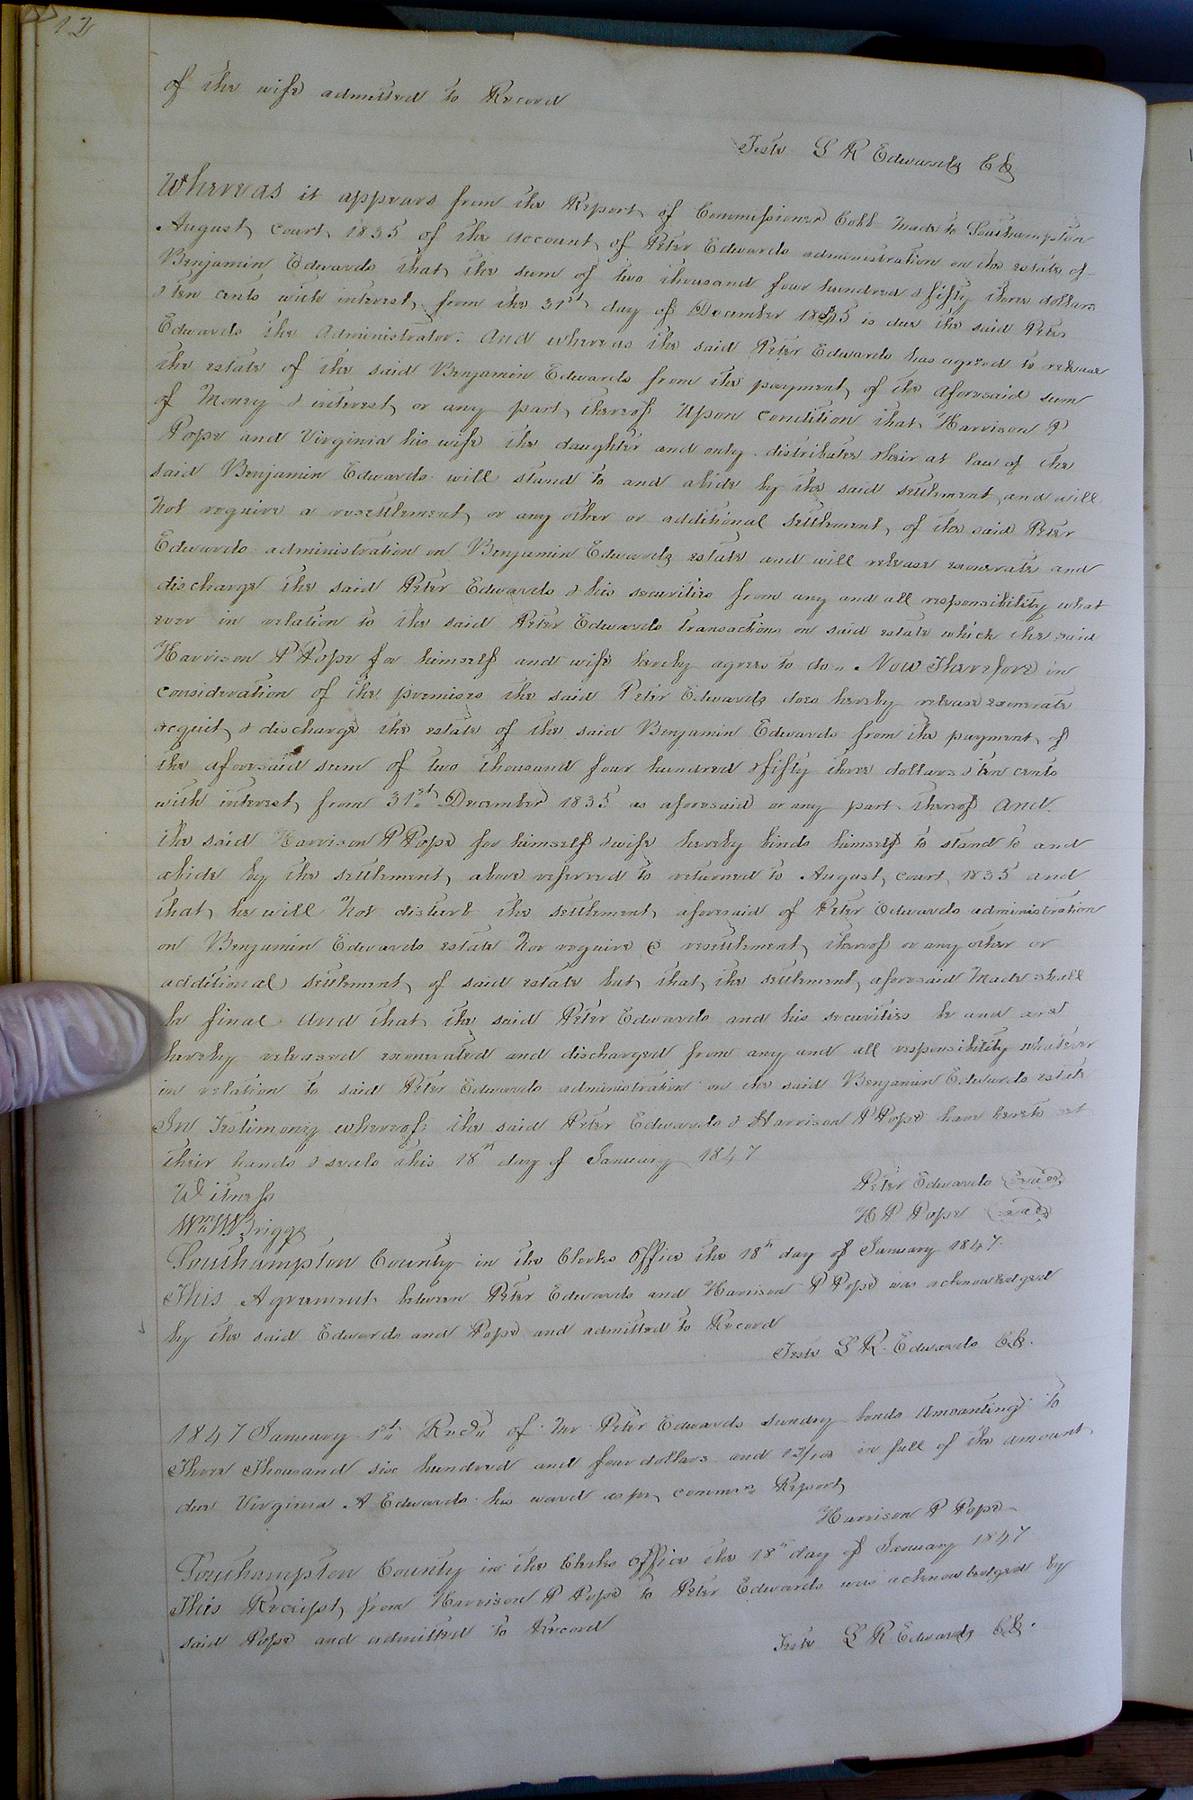 12
of the wife admitted to Record
Teste L R Edwards CC
Whereas it appears from the Report of Commissioner Cobb made to Southampton
August court 1835 of the account of Peter Edwards administration on the estate of
Benjamin Edwards that the sum of two thousand four hundred & fifty three dollars
& ten cents with interest from the 31st day of December 1835 is due the said Peter
Edwards the Administrator. And whereas the said Peter Edwards has agreed to release
the estate of the said Benjamin Edwards from the payment of the aforesaid sum
of Money & interest or any part thereof Upon condition that Harrison P
Pope and Virginia his wife the daughter and only distributee & heir at law of the
said Benjamin Edwards will stand to and abide by the said settlement and will
Not require a resettlement or any other or additional settlement of the said Peter
Edwards administration on Benjamin Edwards estate and will release exonerate and
discharge the said Peter Edwards & his securities from any and all responsibility what
ever in relation to the said Peter Edwards transactions on said estate which the said
Harrison P Pope for himself and wife hereby agrees to do. Now Therefore in
consideration of the premises the said Peter Edwards does hereby release exonerate
acquit & discharge the estate of the said Benjamin Edwards from the payment of
the aforesaid sum of two thousand four hundred & fifty three dollars & ten cents
with interest from 31st December 1835 as aforesaid or any part thereof And
the said Harrison P Pope for himself & wife hereby binds himself to stand to and
abide by the settlement above referred to returned to August court 1835 and
that he will Not disturb the settlement aforesaid of Peter Edwards administration
on Benjamin Edwards estate Nor require a resettlement thereof or any other or
additional settlement of said estate but that the settlement aforesaid Made shall
be final And that the said Peter Edwards and his securities be and are
hereby released exonerated and discharged from any and all responsibility whatever
in relation to said Peter Edwards administration on the said Benjamin Edwards estate
In Testimony whereof the said Peter Edwards & Harrison P Pope have hereto set
their hands & seals this 18th day of January 1847
Witness
Peter Edwards (Seal)
Wm W Briggs
H P Pope (Seal)
Southampton County in the Clerks Office the 18th day of January 1847
This Agreement between Peter Edwards and Harrison P Pope was acknowledged
by the said Edwards and Pope and admitted to Record
Teste L R Edwards CC.
1847 January 1st Recd of Mr Peter Edwards sundry bonds Amounting to
Three Thousand six hundred and four dollars and 12/100 in full of the amount
due Virginia A Edwards his ward as per commrs Report
Harrison P Pope
Southampton County in the Clerks Office the 18th day of January 1847
This Receipt from Harrison P Pope to Peter Edwards was acknowledged by
said Pope and admitted to Record
Teste L R Edwards CC.